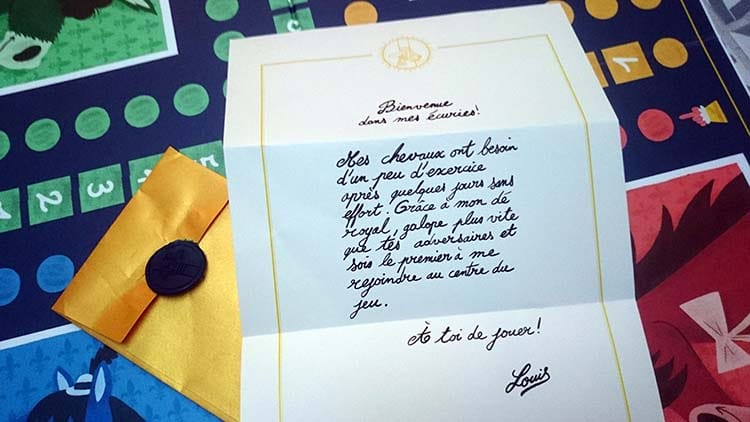 Bienvenue
dans mes écuries!
Mes chevaux ont besoin
d'un peu d'exercice
après quelques jours sans
effort. Grâce à mon dé
royal, galope plus vite
que tes adversaires et
sois le premier à me
rejoindre au centre du
jeu.
À toi de jouer!
Louis
2
3
4
5
1